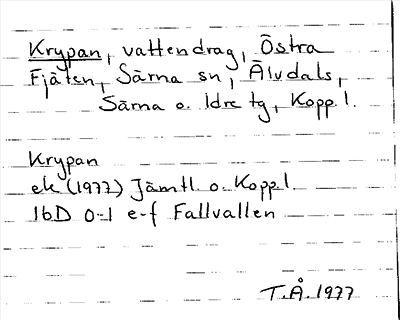 Krypan, vattendrag, Östra
Fjäten, Särna sn, Älvdals,
Särna o. Idre tg, Kopp l.
Krypan
ek (1977) Jämtl. o. Kopp l.
16D 0-1 e-f Fallvallen
T.Å. 1977